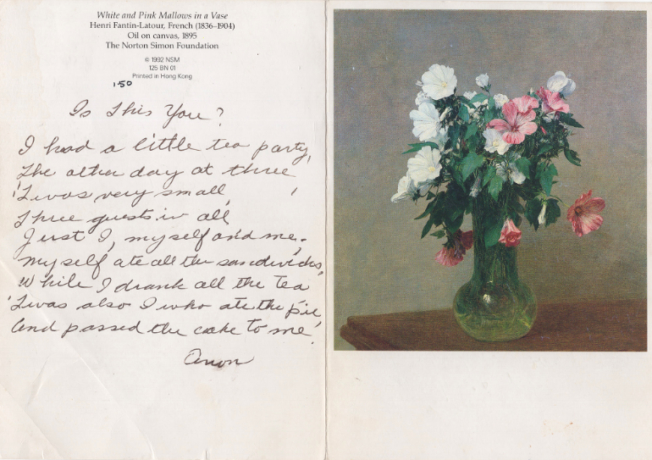 White and Pink Mallows in a Vase
Henri Fantin-Latour, French (1836–1904)
Oil on canvas, 1895
The Norton Simon Foundation
© 1992 NSM
125 BN 01
Printed in Hong Kong
1.50
Is This You?
I had a little tea party,
The other day at three
'Twas very small,
Three guests in all
Just I, myself and me.
Myself ate all the sandwiches,
While I drank all the tea
'Twas also I who ate the pie,
And passed the cake to me.
Anon